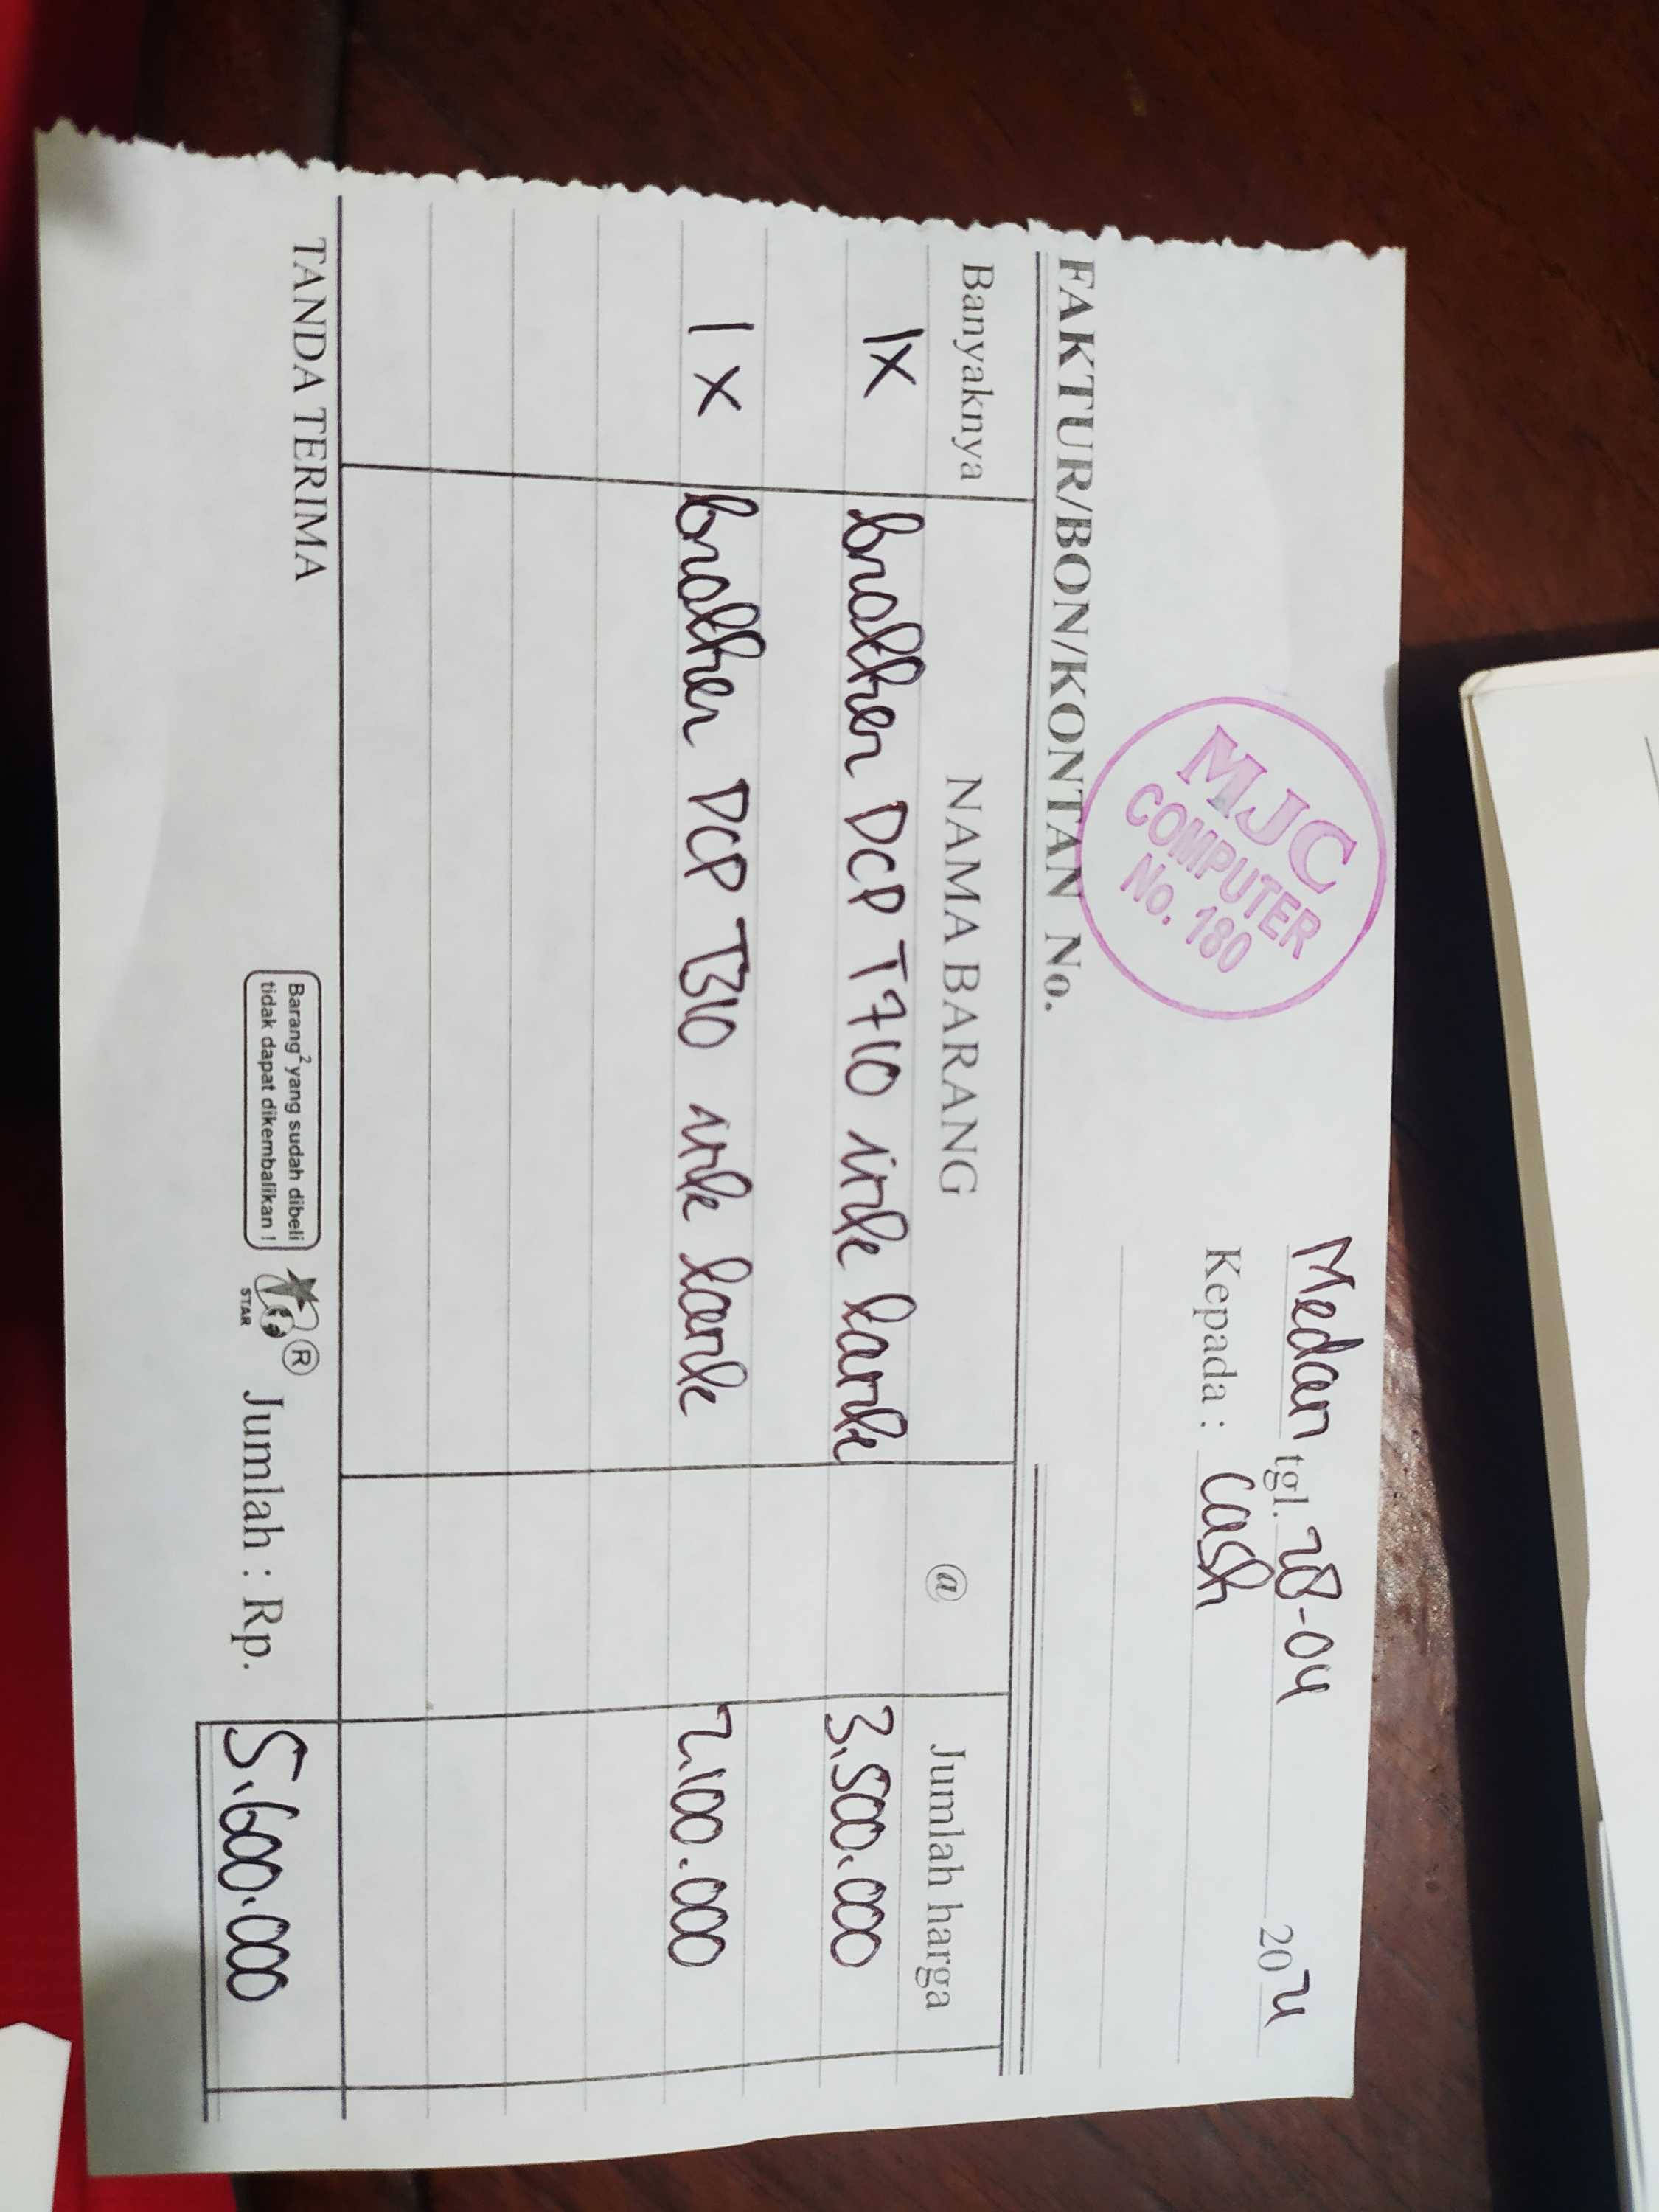 MJC
COMPUTER
No. 180
Medan tgl. 28-04 2021
Kepada : Cash
FAKTUR/BON/KONTAN No.
Banyaknya NAMA BARANG @ Jumlah harga
1x brother DCP T710 ink tank 3.500.000
1x brother DCP T310 ink tank 2.100.000
TANDA TERIMA
Barang² yang sudah dibeli
tidak dapat dikembalikan !
STAR
®
Jumlah : Rp. 5.600.000